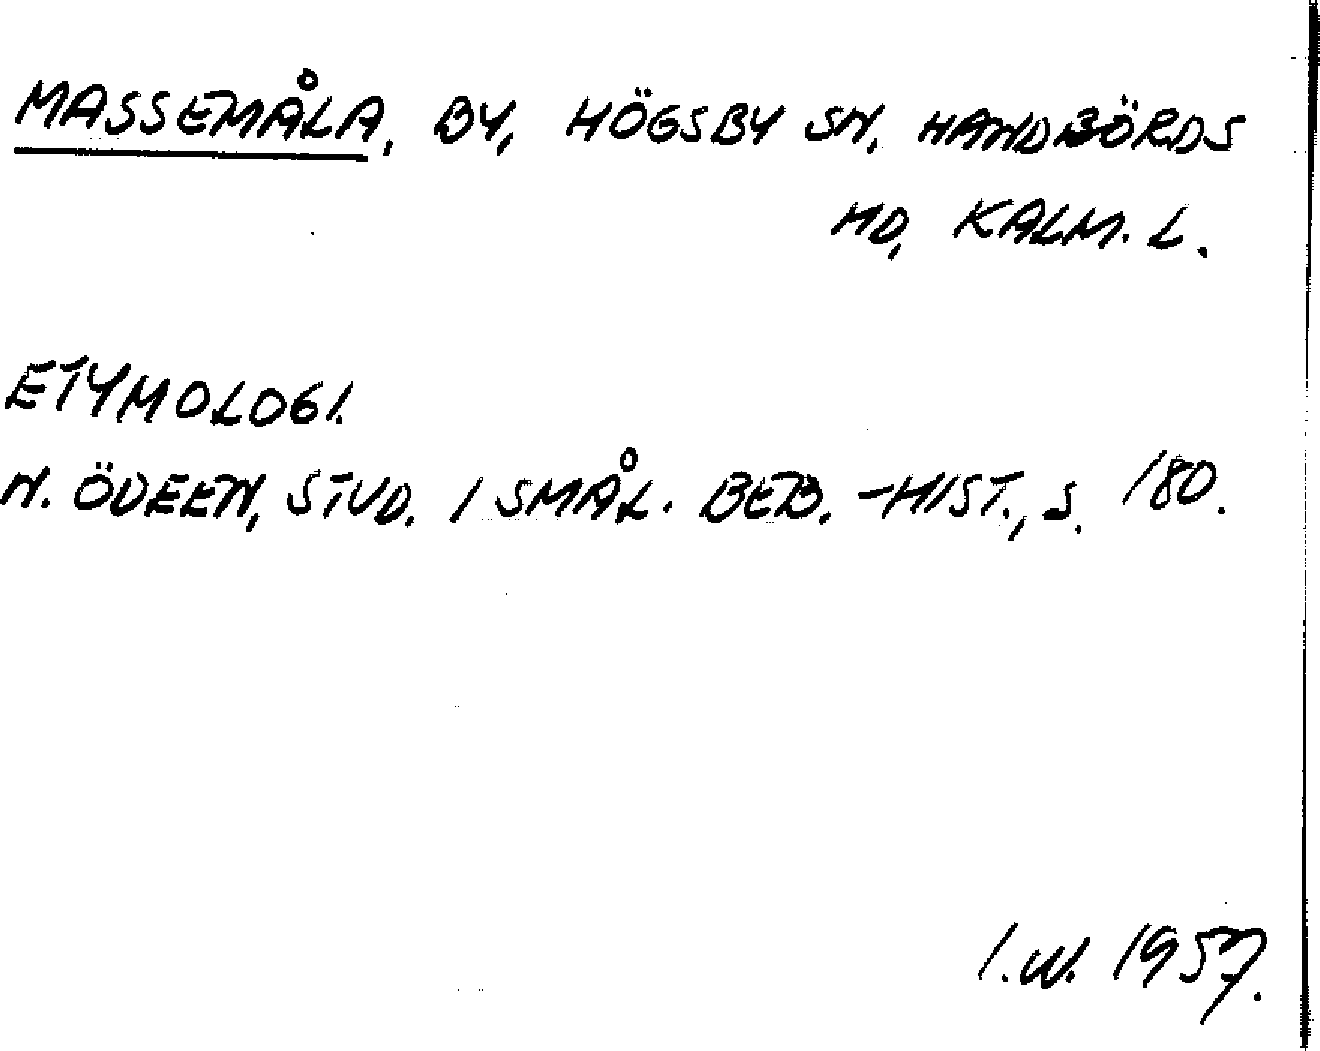 MASSEMÅLA, BY, HÖGSBY SN, HANDBÖRDS
HD, KALM. L.
ETYMOLOGI.
N. ÖDEEN, STUD. I SMÅL. BEB.-HIST., S. 180.
I.W. 1957.